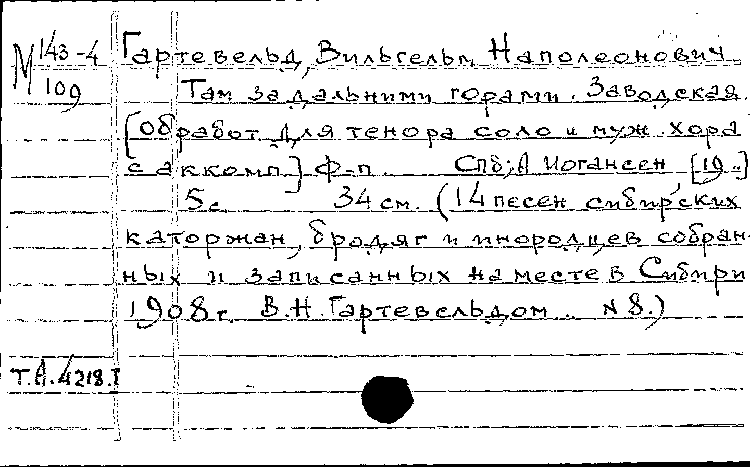 М 143-4
109
Гартевельд, Вильгельм Наполеонович
Там за дальними горами. Заводская.
[обработ. для тенора соло и муж. хора
с аккомп.] ф-п. Спб; А Иогансен, [19..]
5с. 34 см. (14 песен сибирских
каторжан, бродяг и инородцев собран-
ных и записанных на месте в Сибири
1908 г. В.Н. Гартевельдом. N 8.)
Т.А.4218.I